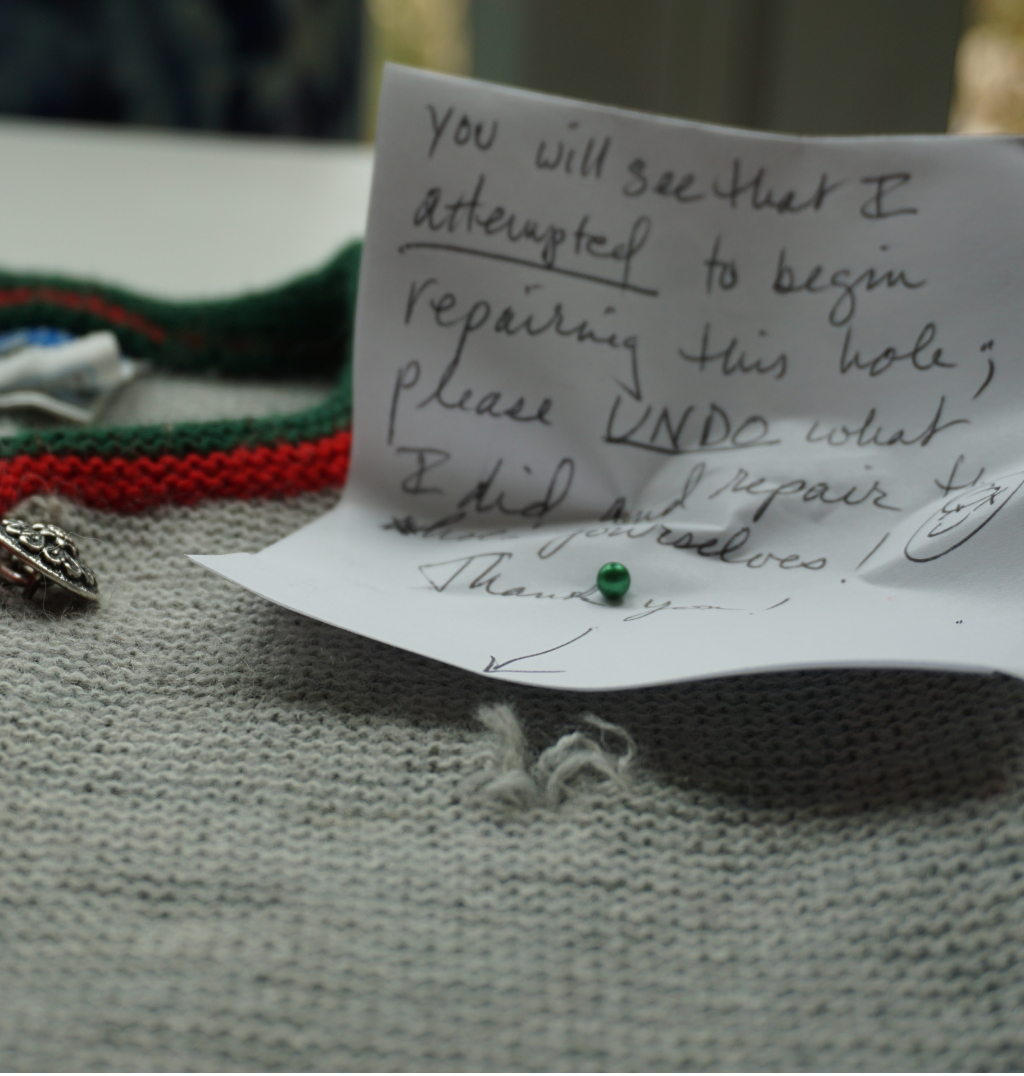 you will see that I
attempted to begin
repairing this hole;
please UNDO what
I did and repair th
yourselves!
Thank you!